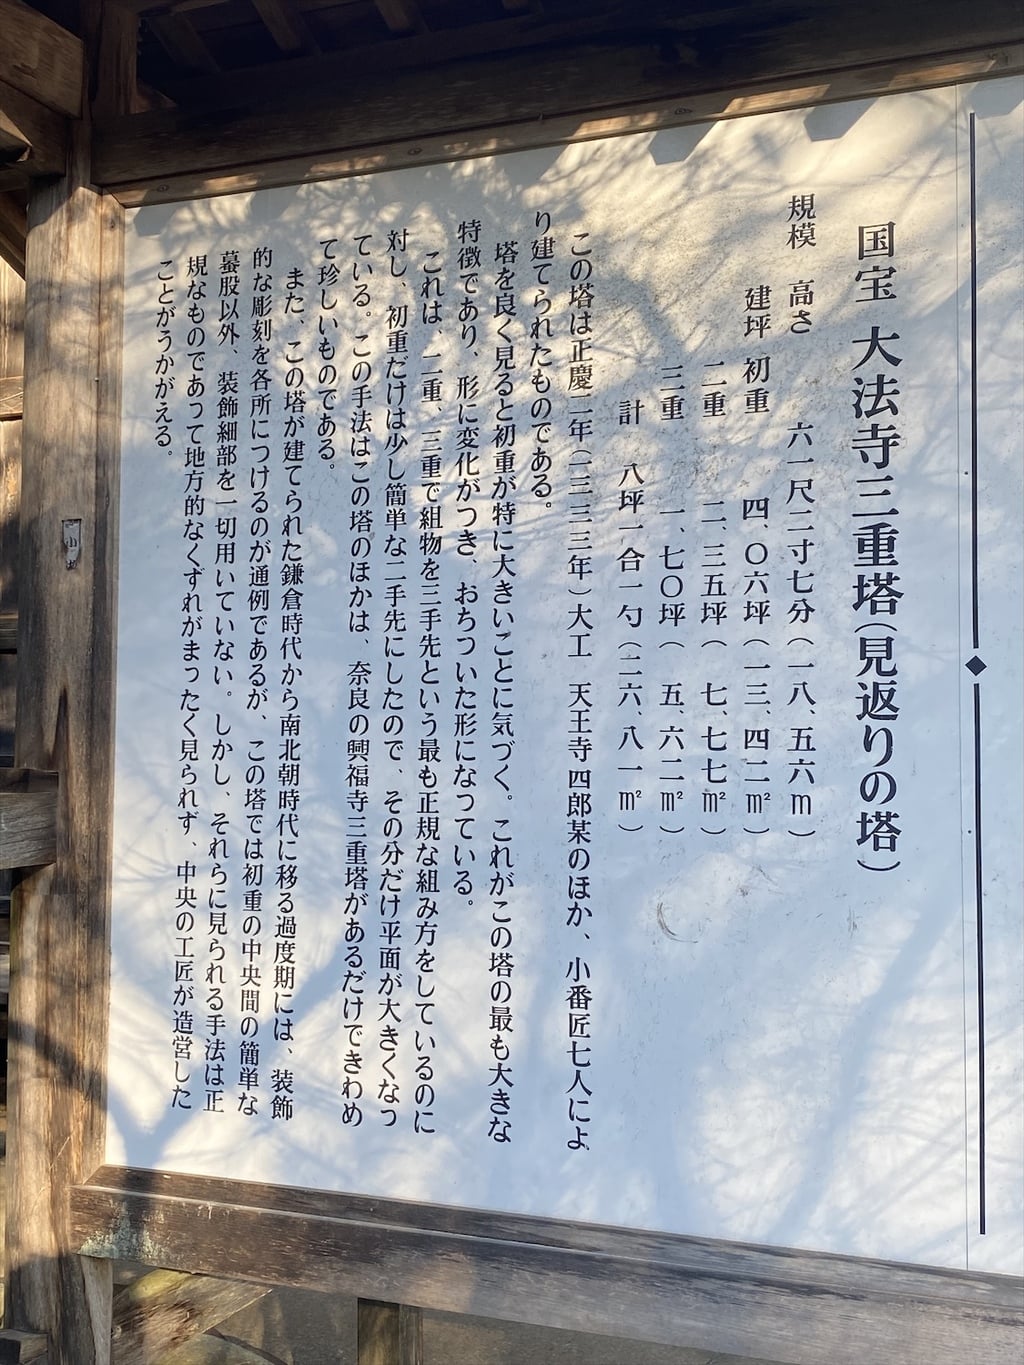 国宝 大法寺三重塔(見返りの塔)
規模 高さ 六一尺二寸七分(一八、五六m)
建坪 初重 四、〇六坪(一三、四二㎡)
二重 二、三五坪( 七、七七㎡)
三重 一、七〇坪( 五、六二㎡)
計 八坪一合一勺(二六、八一㎡)
この塔は正慶二年(一三三三年)大工 天王寺四郎某のほか、小番匠七人によ
り建てられたものである。
塔を良く見ると初重が特に大きいことに気づく。これがこの塔の最も大きな
特徴であり、形に変化がつき、おちついた形になつている。
これは、二重、三重で組物を三手先という最も正規な組み方をしているのに
対し、初重だけは少し簡単な二手先にしたので、その分だけ平面が大きくなっ
ている。この手法はこの塔のほかは、奈良の興福寺三重塔があるだけできわめ
て珍しいものである。
また、この塔が建てられた鎌倉時代から南北朝時代に移る過度期には、装飾
的な彫刻を各所につけるのが通例であるが、この塔では初重の中央間の簡単な
蟇股以外、装飾細部を一切用いていない。しかし、それらに見られる手法は正
規なものであって地方的なくずれがまったく見られず、中央の工匠が造営した
ことがうかがえる。